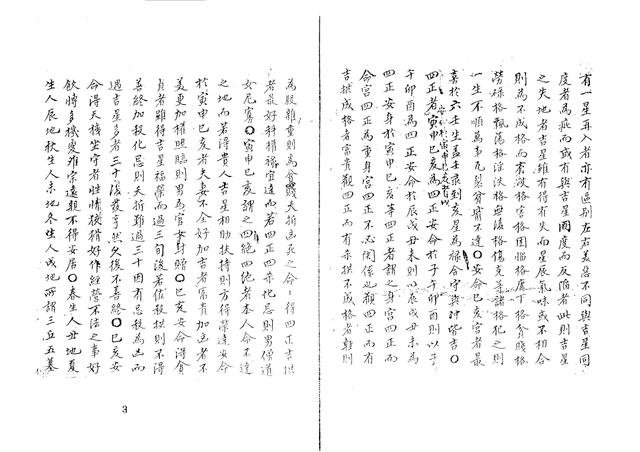 有一星再入者亦有區別左右美惡不同與吉星同
度者為疵而或有與吉星同度而反陷者此則吉星
之失地者吉星雖有得有失而星辰氣味或不相合
則為不成格而有破格害格困惱格犀丁格貧賤格
勞碌格飄蕩格淫泆格無後格傷克等諸格犯之則
一生不順萬事九是貧窘不達〇安命巳亥宮者最
喜於六壬生盖壬祿到亥星為祿合守與沖皆吉〇
四正者寅申巳亥為四正安命於子午卯酉則以子
安命於寅申巳亥者以
午卯酉為四正安命於辰戌丑未則以辰戌丑未為
四正安身於寅申巳亥等四正者謂之身宮四正而
命宮四正為重身宮四正不必關係也觀四正而有
吉拱成格者富貴觀四正而有來拱不成格者輕則
為駁雜重則為貧賤夭折凶死之命。得四正吉拱
者最好科權祿宜逢而若四正四煞化忌則男僧道
女尼寡〇寅申巳亥謂之四絕四他者本人命不達
之地而若得貴人吉星相助扶持則方得榮達安命
於寅申巳亥者夫妻不全好加吉者富貴加凶者不
美更加權照臨則男為官女封贈〇巳亥安命得貪
貞者雖得吉星福榮而過三旬後若依殺拱則不得
善終加殺化忌則夭折難過三十因有忌殺為凶而
遇吉星多者三十後發亨然久後不善終〇巳亥安
命得天機坐守者性情狡猾好作經營不法之事好
飲時多機變難宗遠親不得安居〇春生人丑地夏
生人辰地秋生人未地冬生人戌地所謂三丘五墓
3